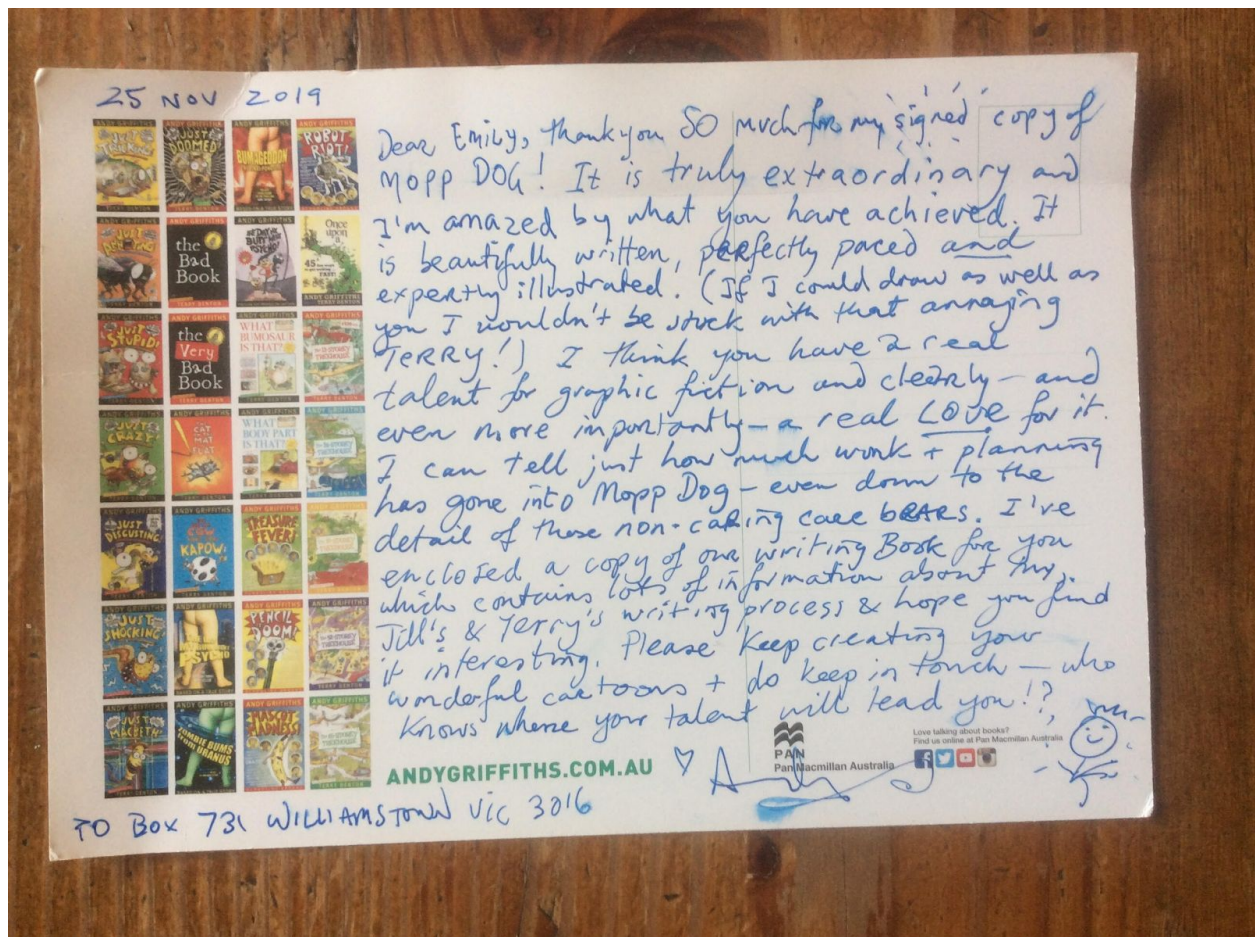 25 NOV 2019
Dear Emily, thankyou SO much for my 'signed' copy of
MOPP DOG! It is truly extraordinary and
I'm amazed by what you have achieved. It
is beautifully written, perfectly paced and
expertly illustrated. (If I could draw as well as
you I wouldn't be stuck with that annoying
TERRY!) I think you have a real
talent for graphic fiction and clearly – and
even more importantly – a real LOVE for it.
I can tell just how much work + planning
has gone into Mopp Dog – even down to the
detail of those non-caring care bears. I've
enclosed a copy of our writing Book for you
which contains lots of information about my,
Jill's & Terry's writing process & hope you find
it interesting. Please keep creating your
wonderful cartoons + do keep in touch – who
knows where your talent will lead you!?
ANDYGRIFFITHS.COM.AU
Andy
PAN
Pan Macmillan Australia
Love talking about books?
Find us online at Pan Macmillan Australia
PO Box 731 WILLIAMSTOWN VIC 3016
JUST TRICKING!
JUST DOOMED!
BUMAGEDDON
ROBOT RIOT!
the Bad Book
Once upon a
45
ANDY GRIFFITHS
JUST STUPID!
the Very Bad Book
WHAT BUMOSAUR IS THAT?
JUST CRAZY!
CAT MAT FLAT
WHAT BODY PART IS THAT?
JUST DISGUSTING!
COW KAPOW!
TREASURE FEVER!
JUST SHOCKING!
PSYCHO
PENCIL DOOM!
JUST MACBETH!
ZOMBIE BUMS from URANUS